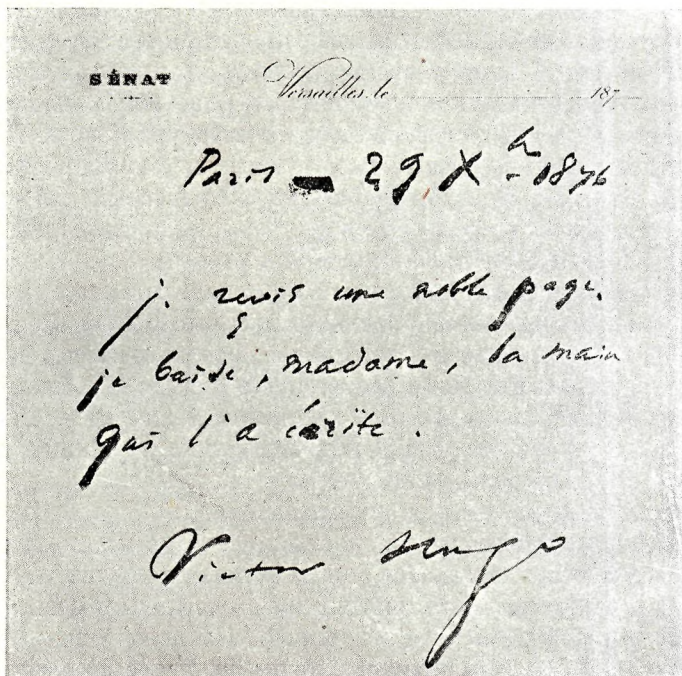 SÉNAT
Versailles, le 187
Paris — 29 Xbre 1876
je reçois une noble page.
je baise, madame, la main
qui l'a écrite.
Victor Hugo